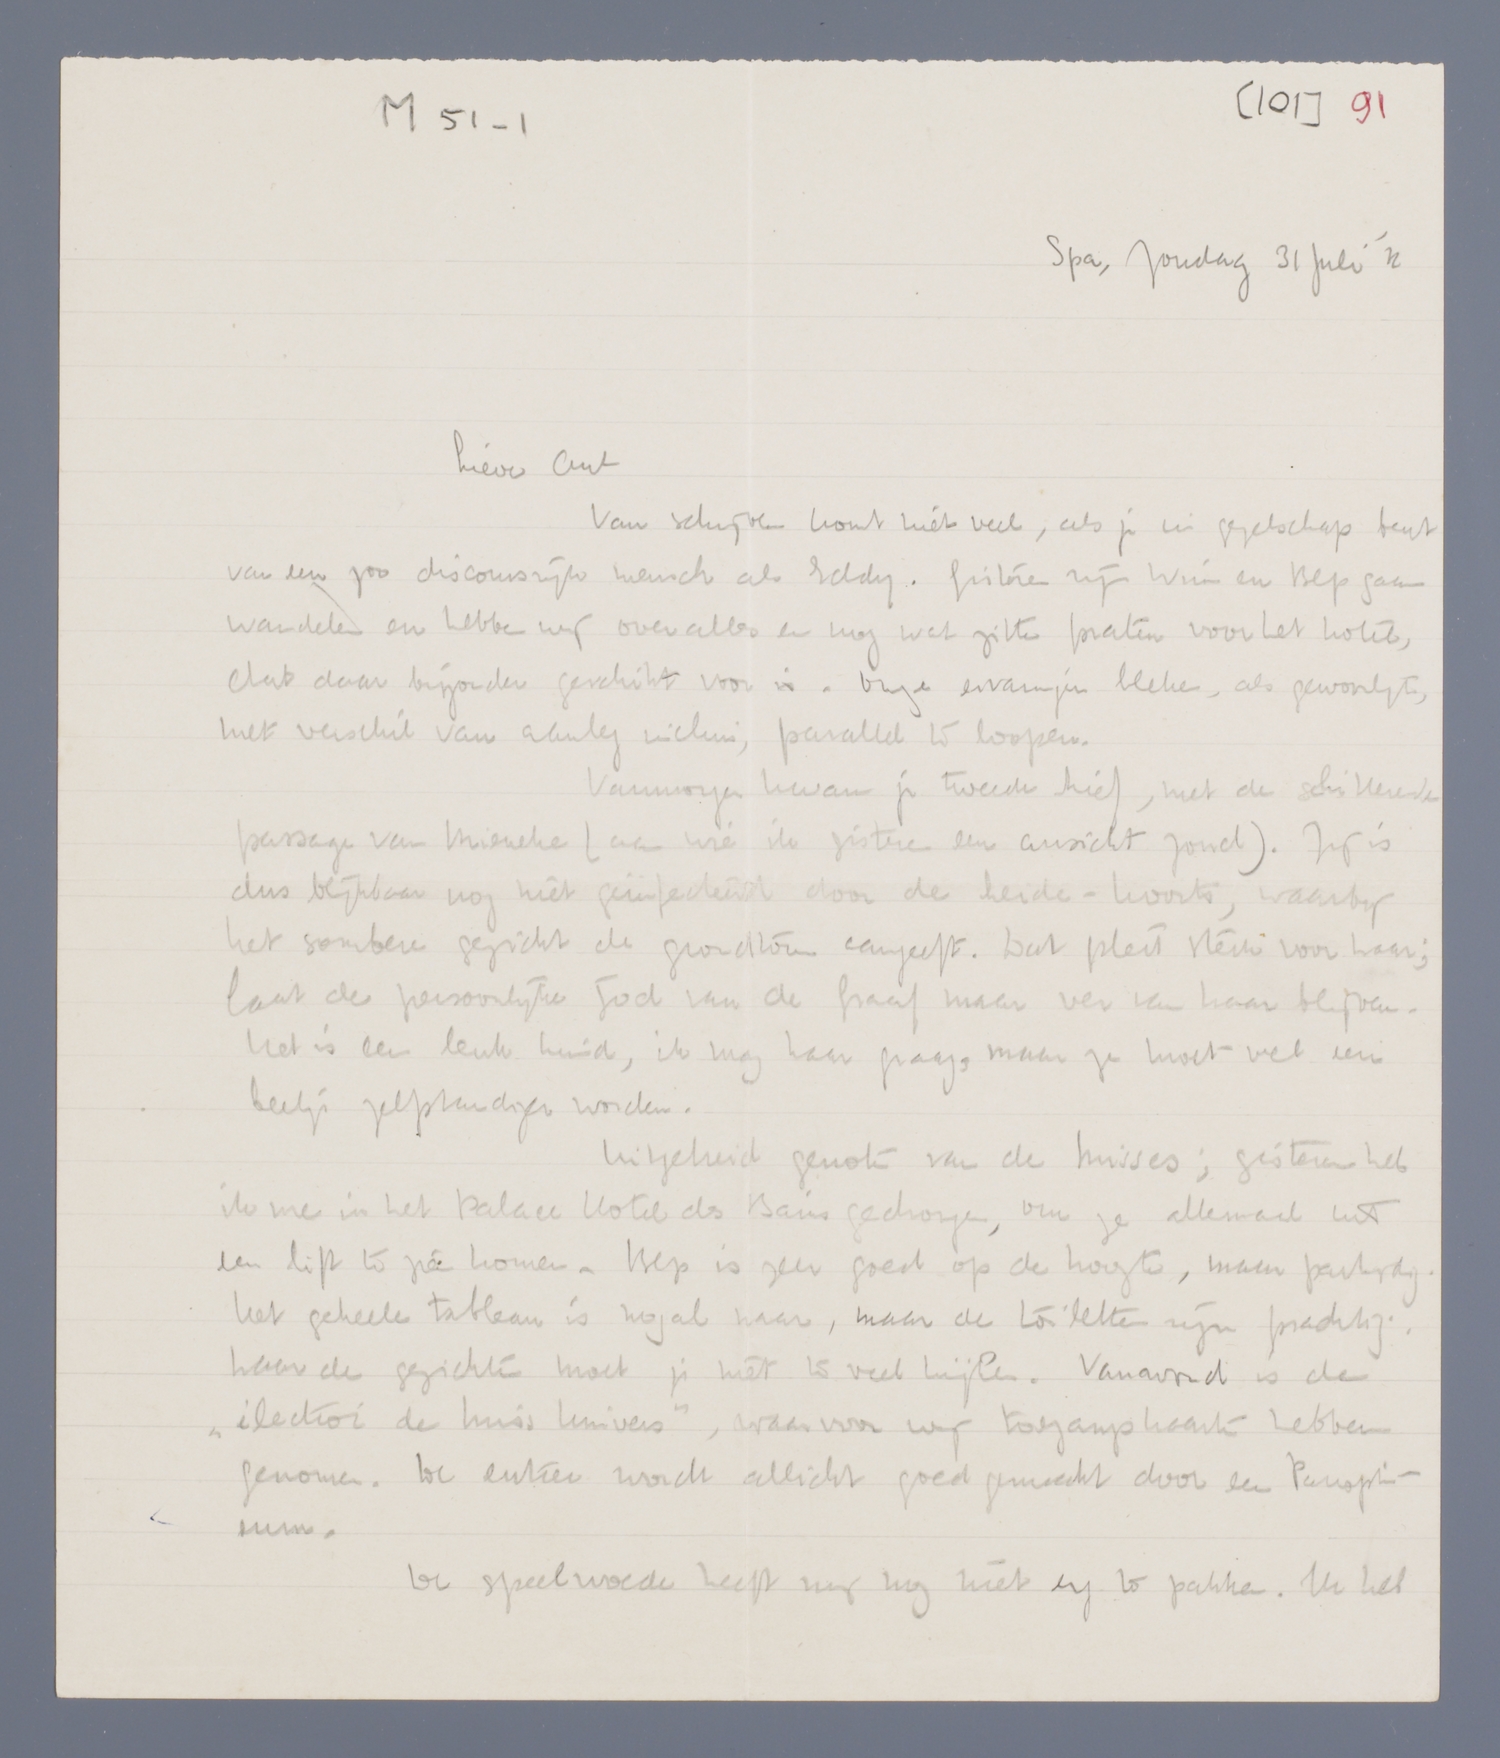 M 51-1
[101] 91
Spa, Zondag 31 Juli '32
Lieve Ant
Van schrijven komt niet veel, als je in gezelschap bent
van een zoo discoursrijk mensch als Eddy. Gisteren zijn Wim en Bep gaan
wandelen en hebben wij over alles en nog wat zitten praten voor het hotel,
dat daar bijzonder geschikt voor is. Onze ervaringen bleken, als gewoonlijk,
met verschil van aanleg inclus, parallel te loopen.
Vanmorgen kwam je tweede brief, met de schitterende
passage van Mieneke (aan wie ik gisteren een ansicht zond). Zij is
dus blijkbaar nog niet geïnfecteerd door de heide-koorts, waarbij
het sombere gezicht de grondtoon aangeeft. Dat pleit sterk voor haar;
laat de persoonlijke God van de Graaf maar ver van haar blijven.
Het is een leuk kind, ik mag haar graag, maar ze moet wel een
beetje zelfstandiger worden.
Uitgebreid genoten van de Misses; gisteren heb
ik me in het Palace Hotel des Bains gedrongen, om ze allemaal uit
een lift te zien komen. Bep is zeer goed op de hoogte, maar partijdig.
Het geheele tableau is nogal naar, maar de toiletten zijn prachtig.
Naar de gezichten moet je niet te veel kijken. Vanavond is de
„élection de Miss Univers", waarvoor wij toegangskaarten hebben
genomen. De entrée wordt allicht goed gemaakt door een Panopti-
cum.
De speelwoede heeft mij nog niet erg te pakken. Ik heb